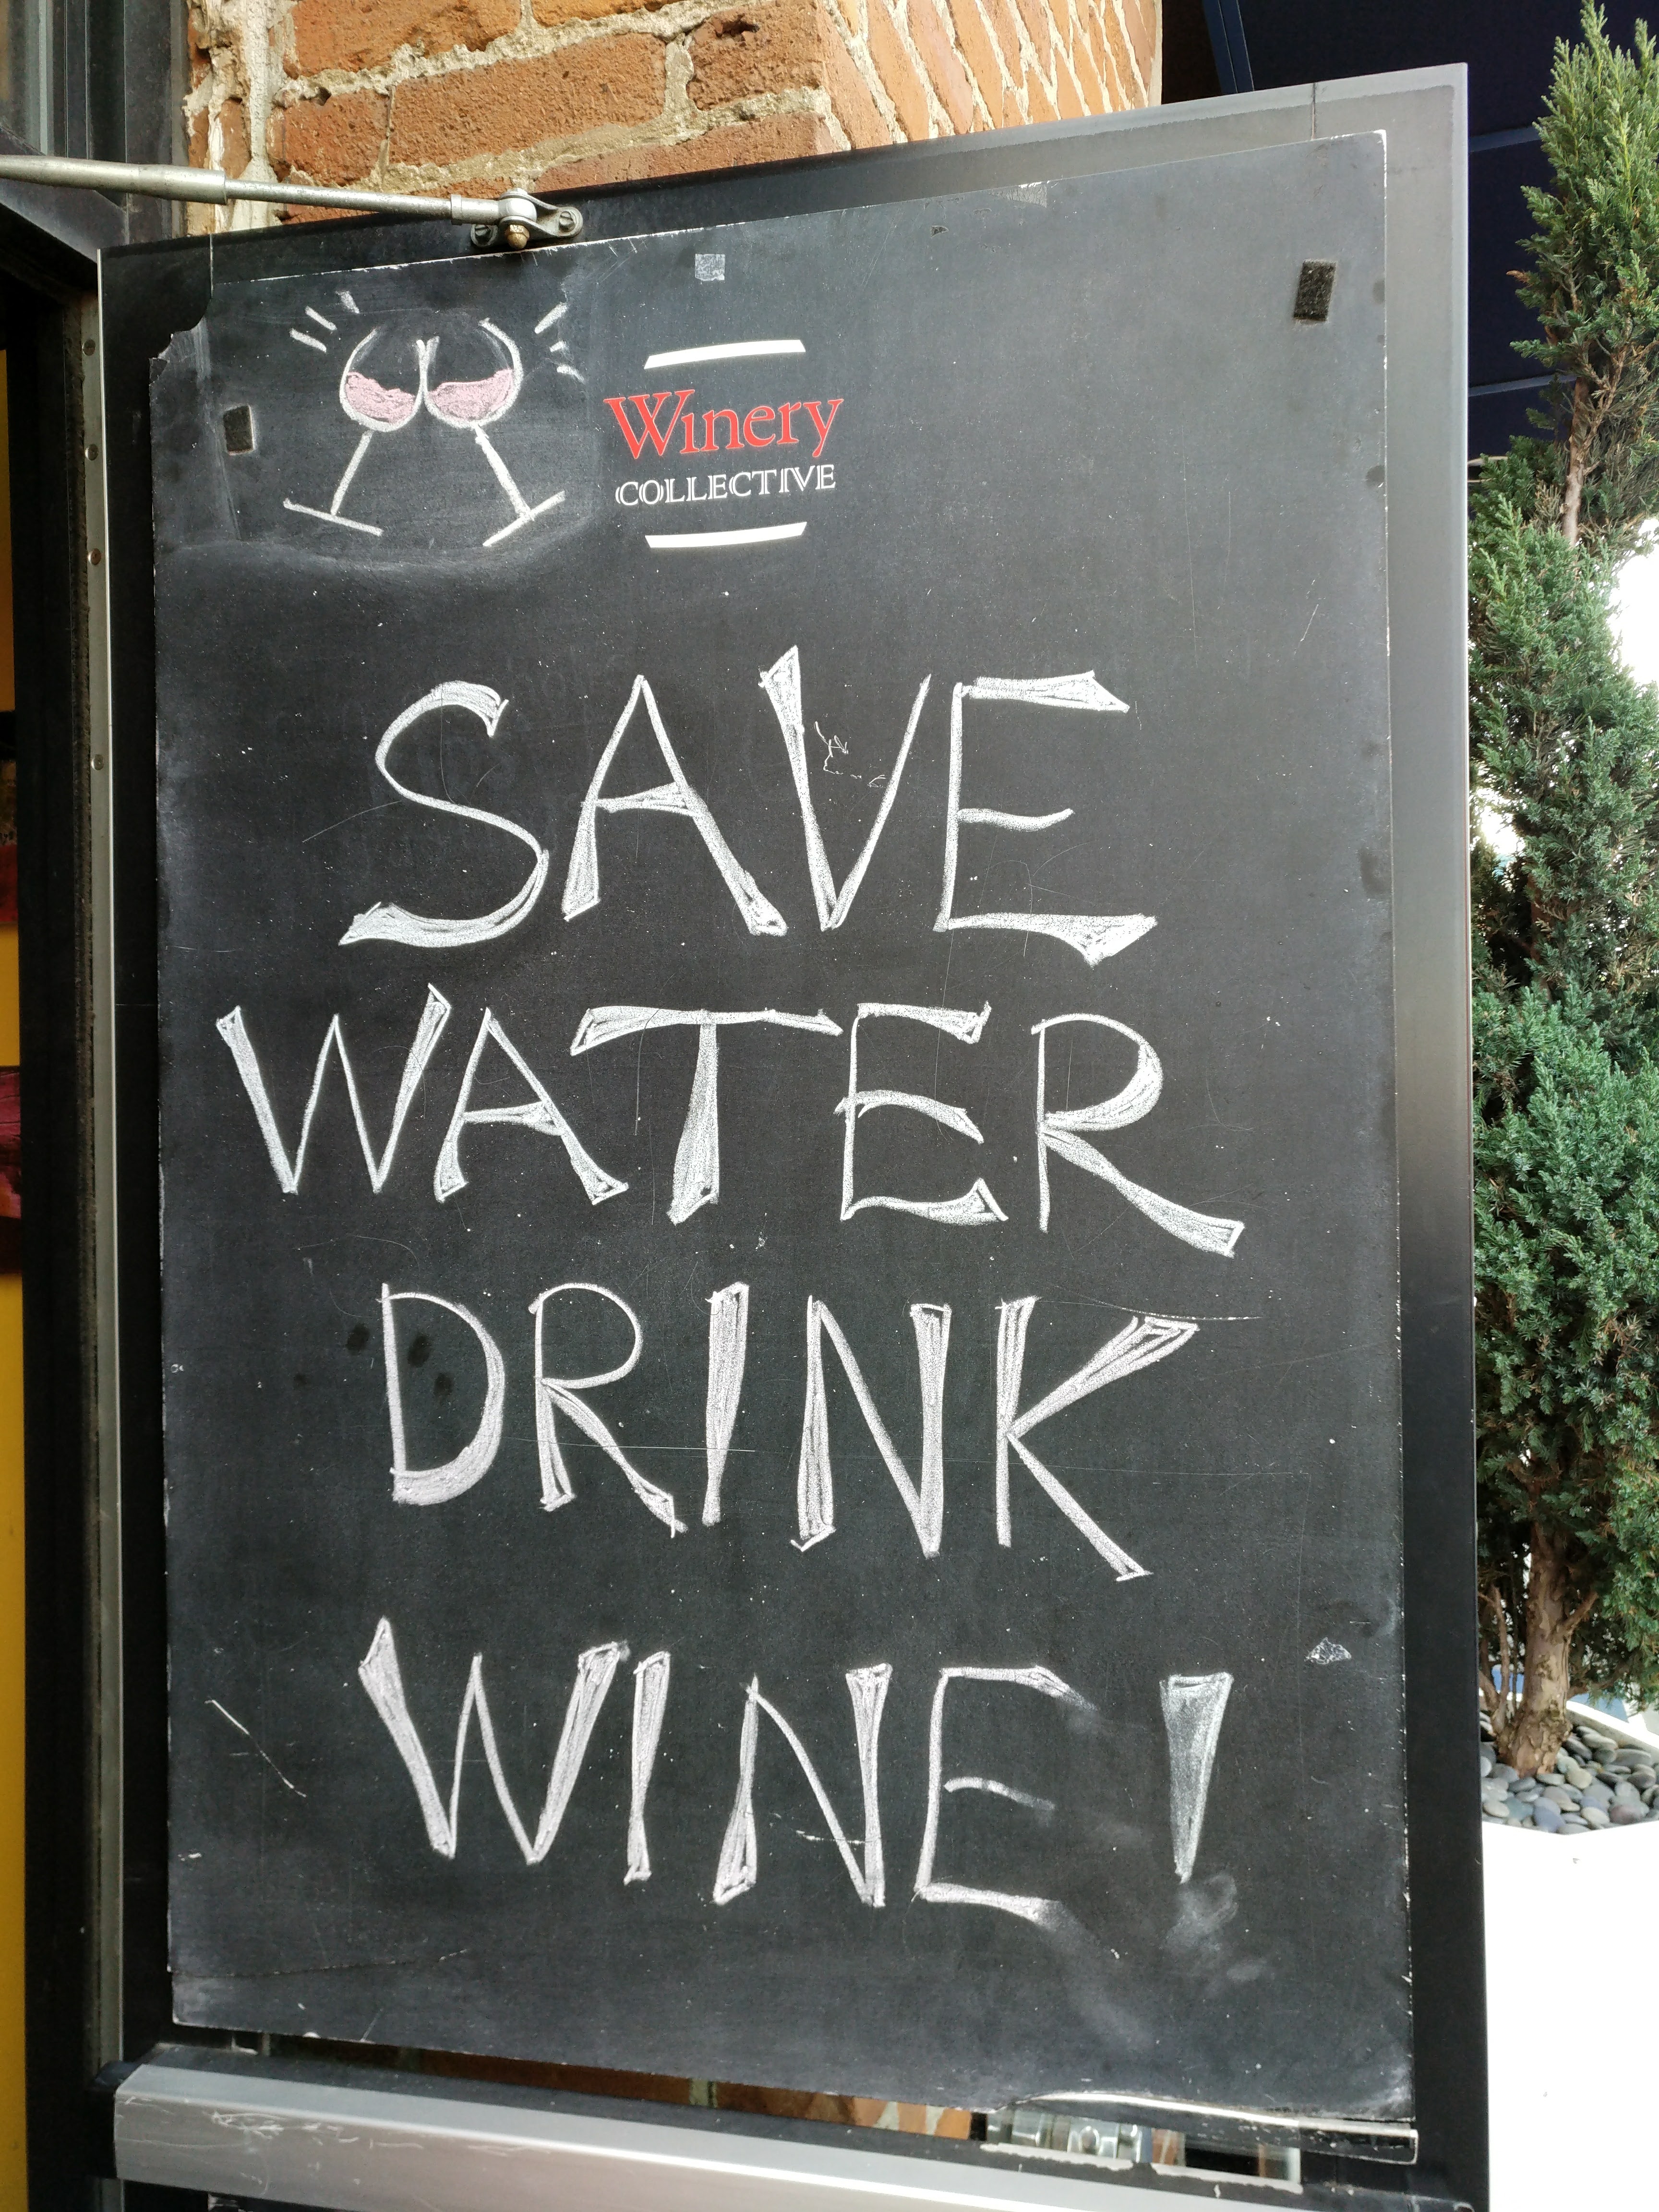 Winery
COLLECTIVE
SAVE
WATER
DRINK
WINE!